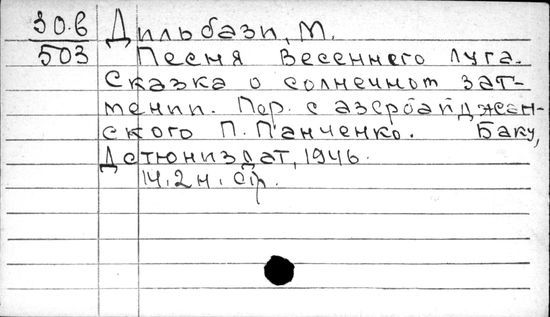 30.б
503
Дильбази, М.
Песня Весеннего Луга.
Сказка о солнечном зат-
мении. Пер. с азербайджан-
ского П. Панченко. Баку,
Детюниздат, 1946.
14, 2 н. стр.